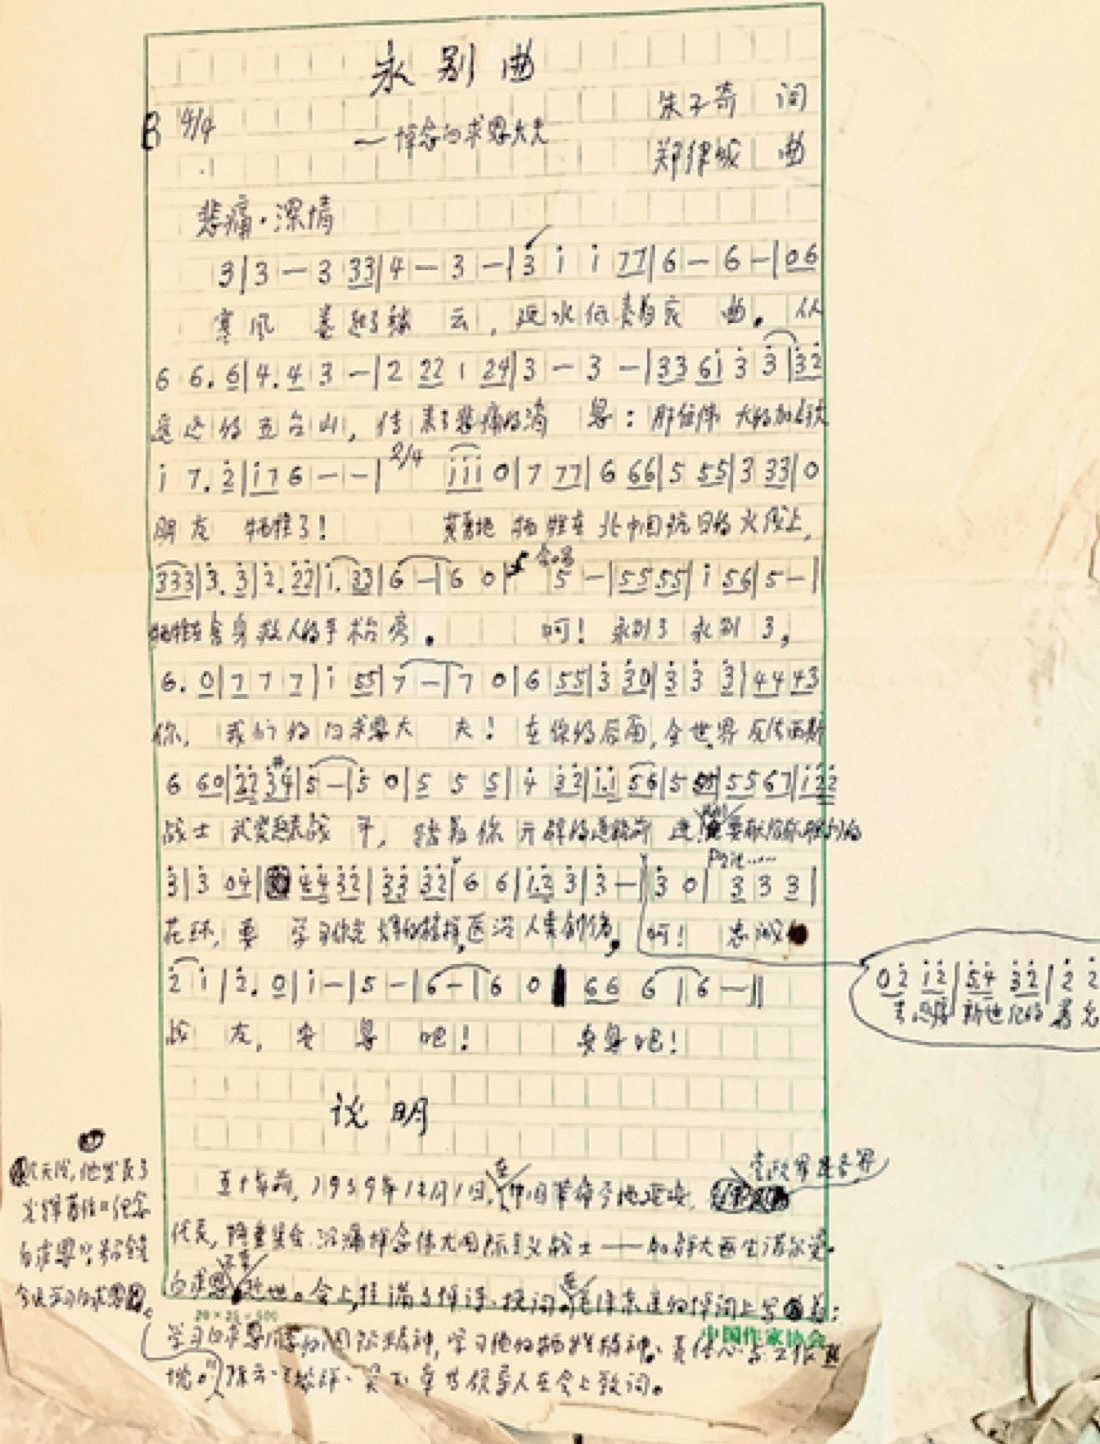 永别曲
B 4/4
——悼念白求恩大夫
朱子奇 词
郑律成 曲
悲痛·深情
3|3 — 3 33|4 — 3 —|3 i i 77|6 — 6 —|06
寒风卷起了 云,延水低奏着哀曲。从
6 6.6|4.4 3 —|2 22 1 24|3 — 3 —|33 6i 3 3|32
遥远的五台山,传来了悲痛的消息:那位伟大的加拿大
i 7.2|i76 — —| 2/4 iii 0|7 77|6 66|5 55|3 33|0
朋友 牺牲了! 英勇地牺牲在北中国抗日的火线上,
333|3.3|2.22|i.33|6 —|6 0| 合唱 5 —|5555|i 56|5 —|
牺牲在舍身救人的手术台旁。 呵!永别了永别了,
6.0|7 7 7|i 55|7 —|7 0|6 55|3 30|3 3 3|4443
你,我们的白求恩大夫!在你的后面,全世界反法西斯
6 60|22 #34|5 —|5 0|5 5 5|4 32|i.i 56|5 55|5567|i22
战士 武装起来战斗,踏着你开辟的道路前进!
3|3 04| 4432|33 32|6 6|i.2 3|3 —|3 0|3 3 3|
花环,要 学习你 医治人类创伤, 呵! 忠诚的
2 i|2.0|i —|5 —|6 —|6 0|66 6|6 —||
战友,安息吧! 安息吧!
02 i2|54 32|2 2
去迎接新世纪的
说明
五十年前,1939年12月1日,在中国革命圣地延安,党政军民各界
代表,隆重集会,沉痛悼念伟大国际主义战士——加拿大医生诺尔曼·
白求恩逝世。会上,挂满了悼诗、挽词。在毛泽东送的悼词上写着:
学习白求恩同志的国际精神,学习他的牺牲精神、责任心与工作热
忱。”陈云、王稼祥、吴玉章等领导人在会上致词。
次天后,他发表了
光辉著作《纪念
白求恩》,号召全
20×25=500
中国作家协会